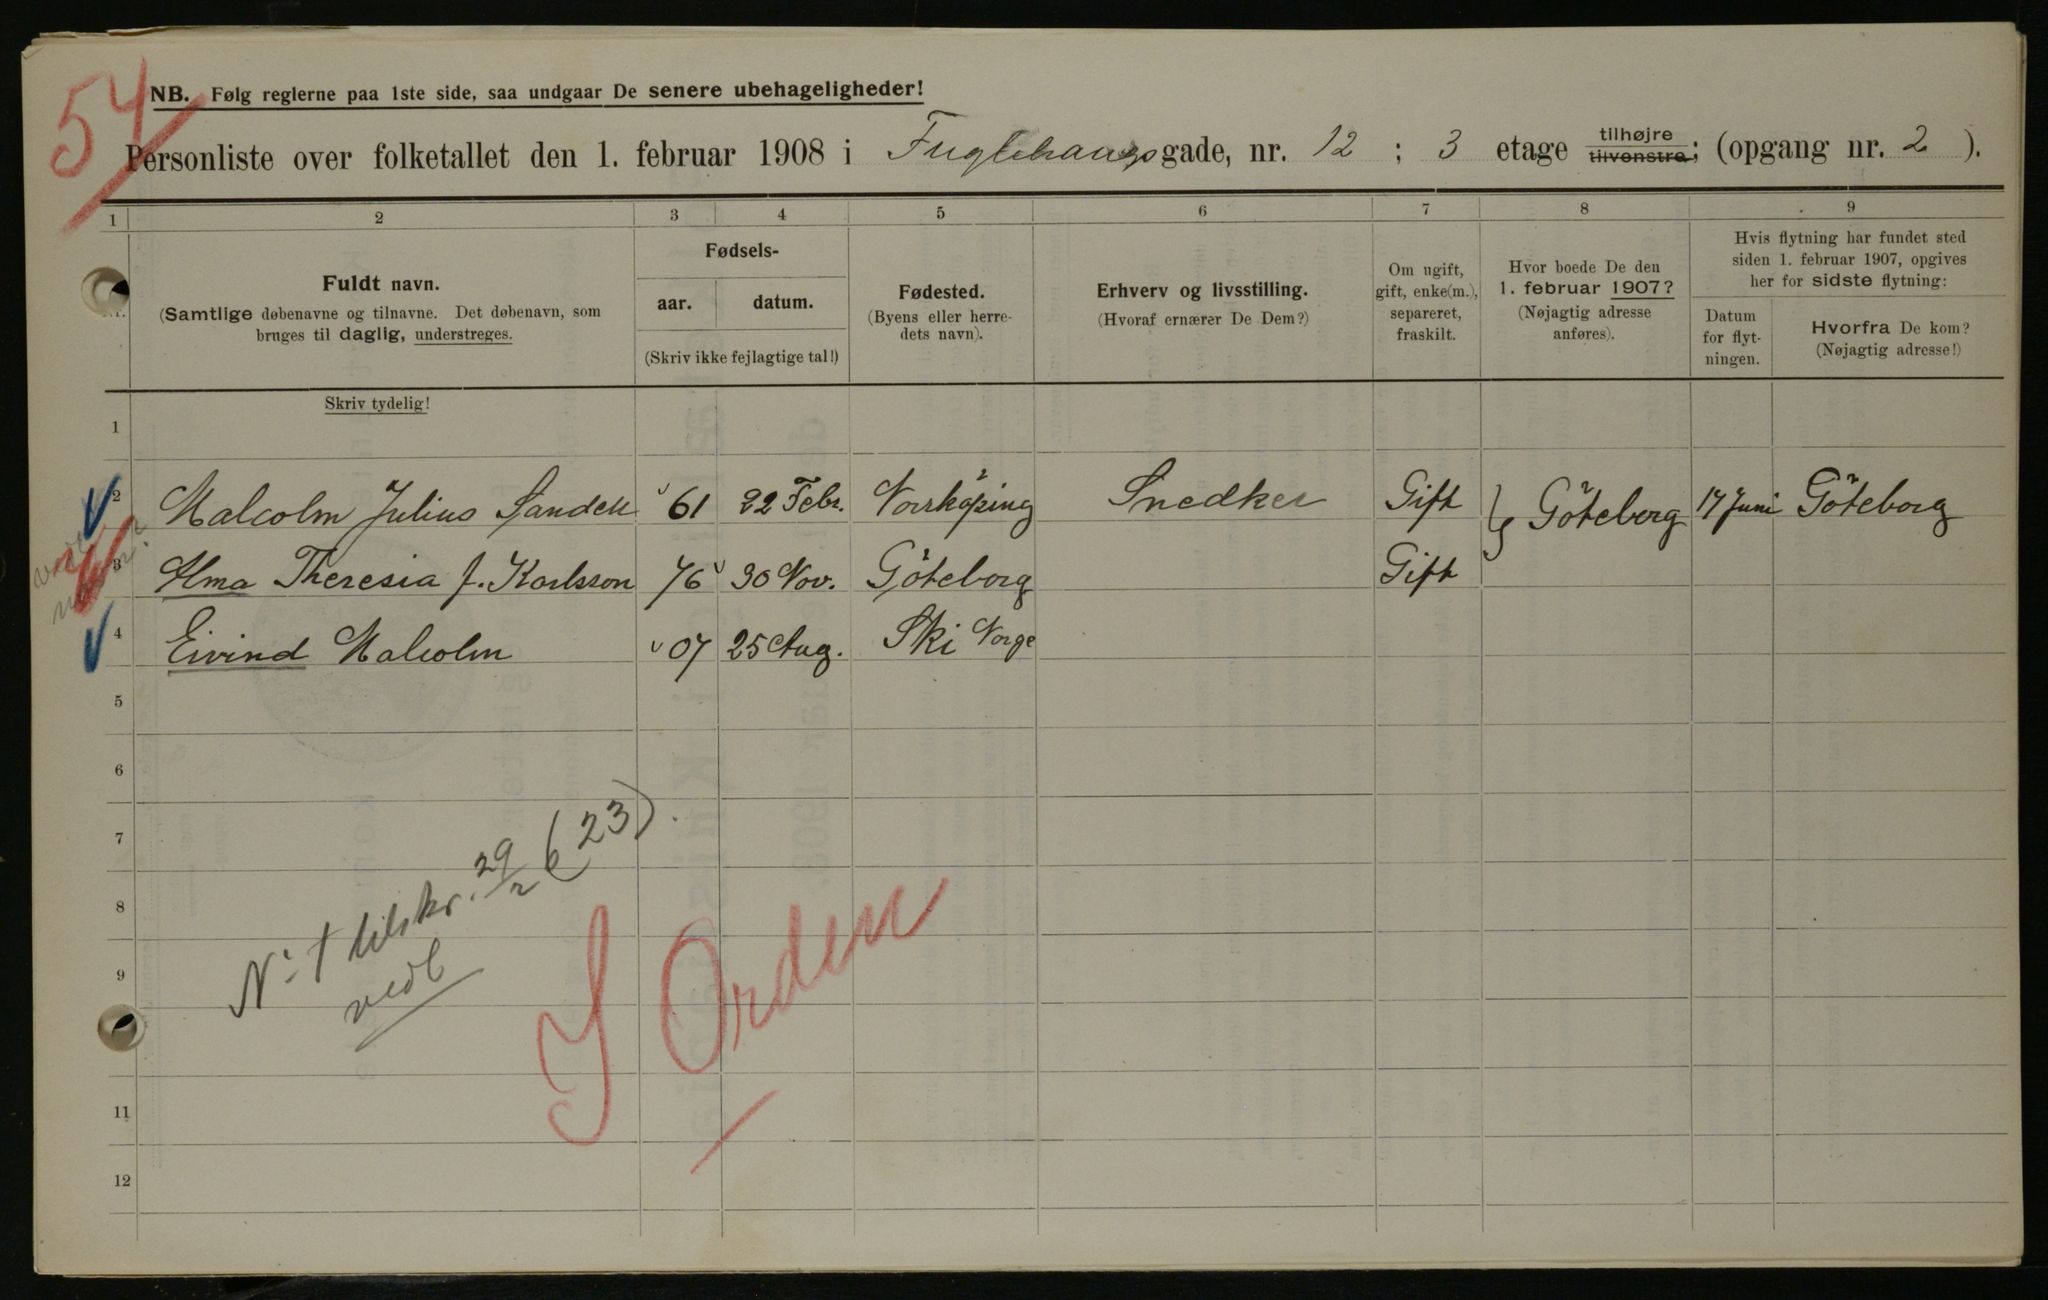 54
NB. Følg reglerne paa 1ste side, saa undgaar De senere ubehageligheder!
Personliste over folketallet den 1. februar 1908 i Fuglehaugs gade, nr. 12 ; 3 etage tilhøjre tilvenstre; (opgang nr. 2 ).
1 2 3 4 5 6 7 8 9
Fuldt navn.
(Samtlige døbenavne og tilnavne. Det døbenavn, som
bruges til daglig, understreges.
Fødsels-
aar. datum.
(Skriv ikke fejlagtige tal!)
Fødested.
(Byens eller herre-
dets navn).
Erhverv og livsstilling.
(Hvoraf ernærer De Dem?)
Om ugift,
gift, enke(m.),
separeret,
fraskilt.
Hvor boede De den
1. februar 1907?
(Nøjagtig adresse
anføres).
Hvis flytning har fundet sted
siden 1. februar 1907, opgives
her for sidste flytning:
Datum
for flyt-
ningen.
Hvorfra De kom?
(Nøjagtig adresse!)
Skriv tydelig!
1
2 Malcolm Julius Sandell 61 22 Febr. Norrköping Snedker Gift } Göteborg 17 Juni Göteborg
3 Alma Theresia f. Karlsson 76 30 Nov. Göteborg Gift
4 Eivind Malcolm 07 25 Aug. Ski Norge
5
6
7
8
9
11
12
No 1 tilskr. 29/2 (23).
vedl
I Orden